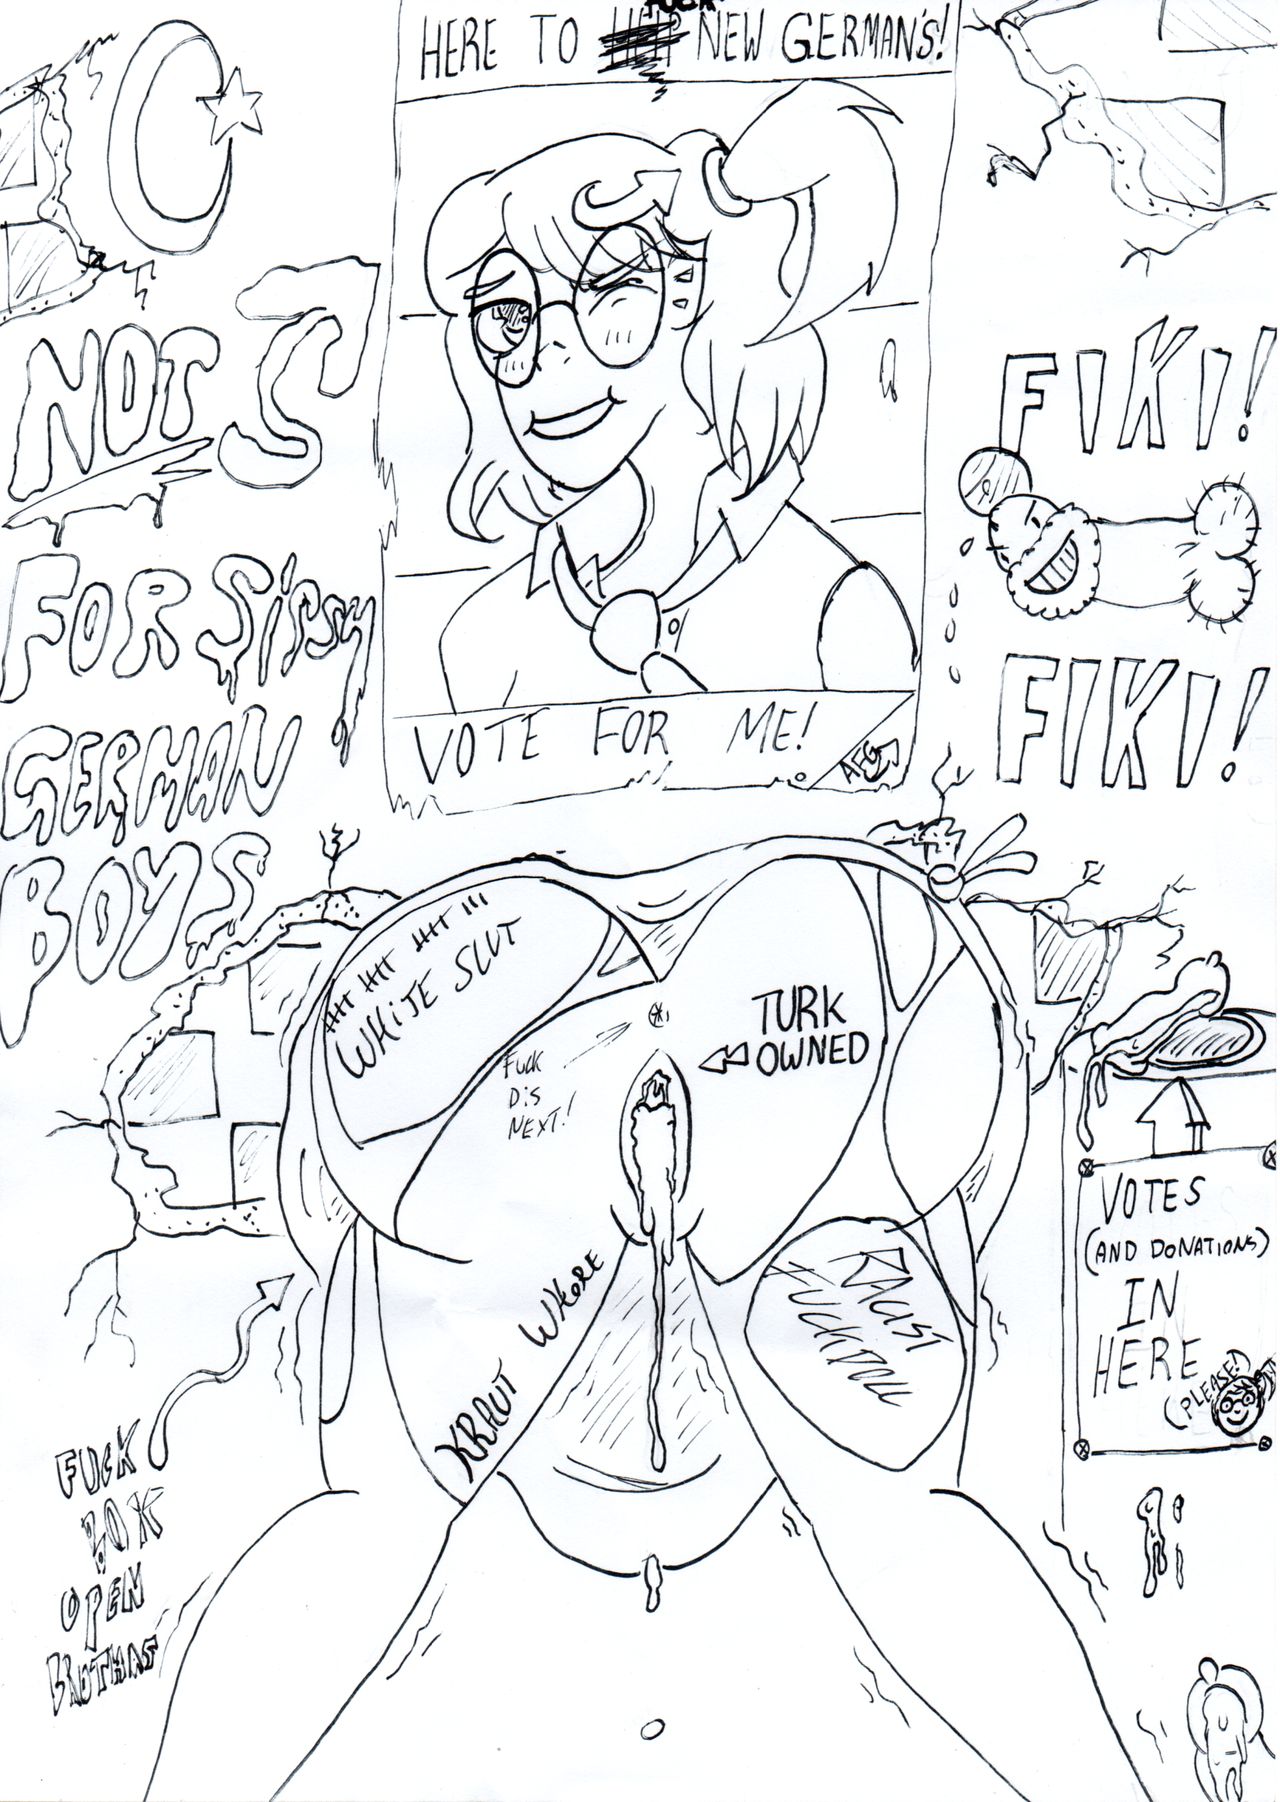 HERE TO FUCK NEW GERMAN'S!
NOT
FOR SISSY
GERMAN
BOYS
FIKI!
FIKI!
VOTE FOR ME!
AFG
WHITE SLUT
TURK
OWNED
FUCK
DIS
NEXT!
KRAUT WHORE
RACIST
FUCKDOLL
VOTES
(AND DONATIONS)
IN
HERE
(PLEASE!)
FUCK
BOX
OPEN
BROTHAS